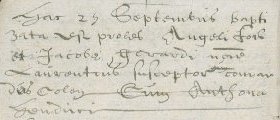 Hac 27 Septembris bapti
zata est proles Angeli fois
et Jacobe Gerardi noie
Laurentius susceptor
des Colon Cum Anthona